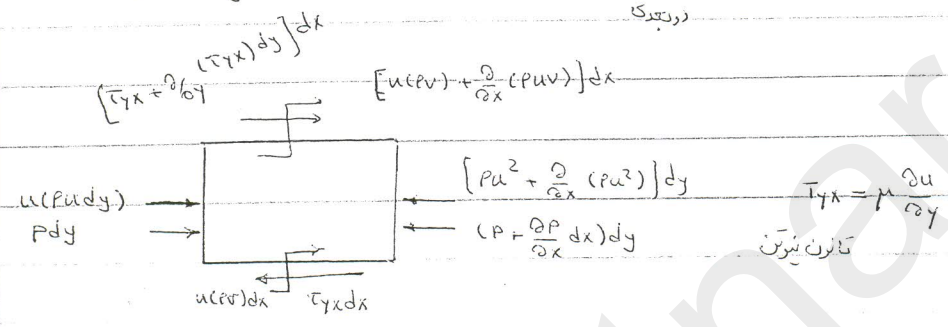 دوبعدی
[τyx + ∂/∂y (τyx) dy] dx
[u(ρv) + ∂/∂x (ρuv)] dx
u(ρudy)
pdy
[ρu² + ∂/∂x (ρu²)] dy
(P + ∂P/∂x dx) dy
τyx = μ ∂u/∂y
قانون نیوتن
u(ρv)dx
τyxdx
inar